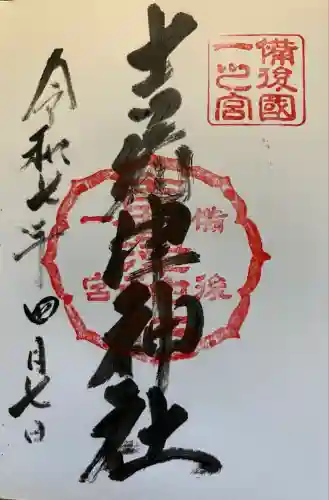 備後國
一之宮
吉備津神社
備後
一宮
令和七年
四月七日